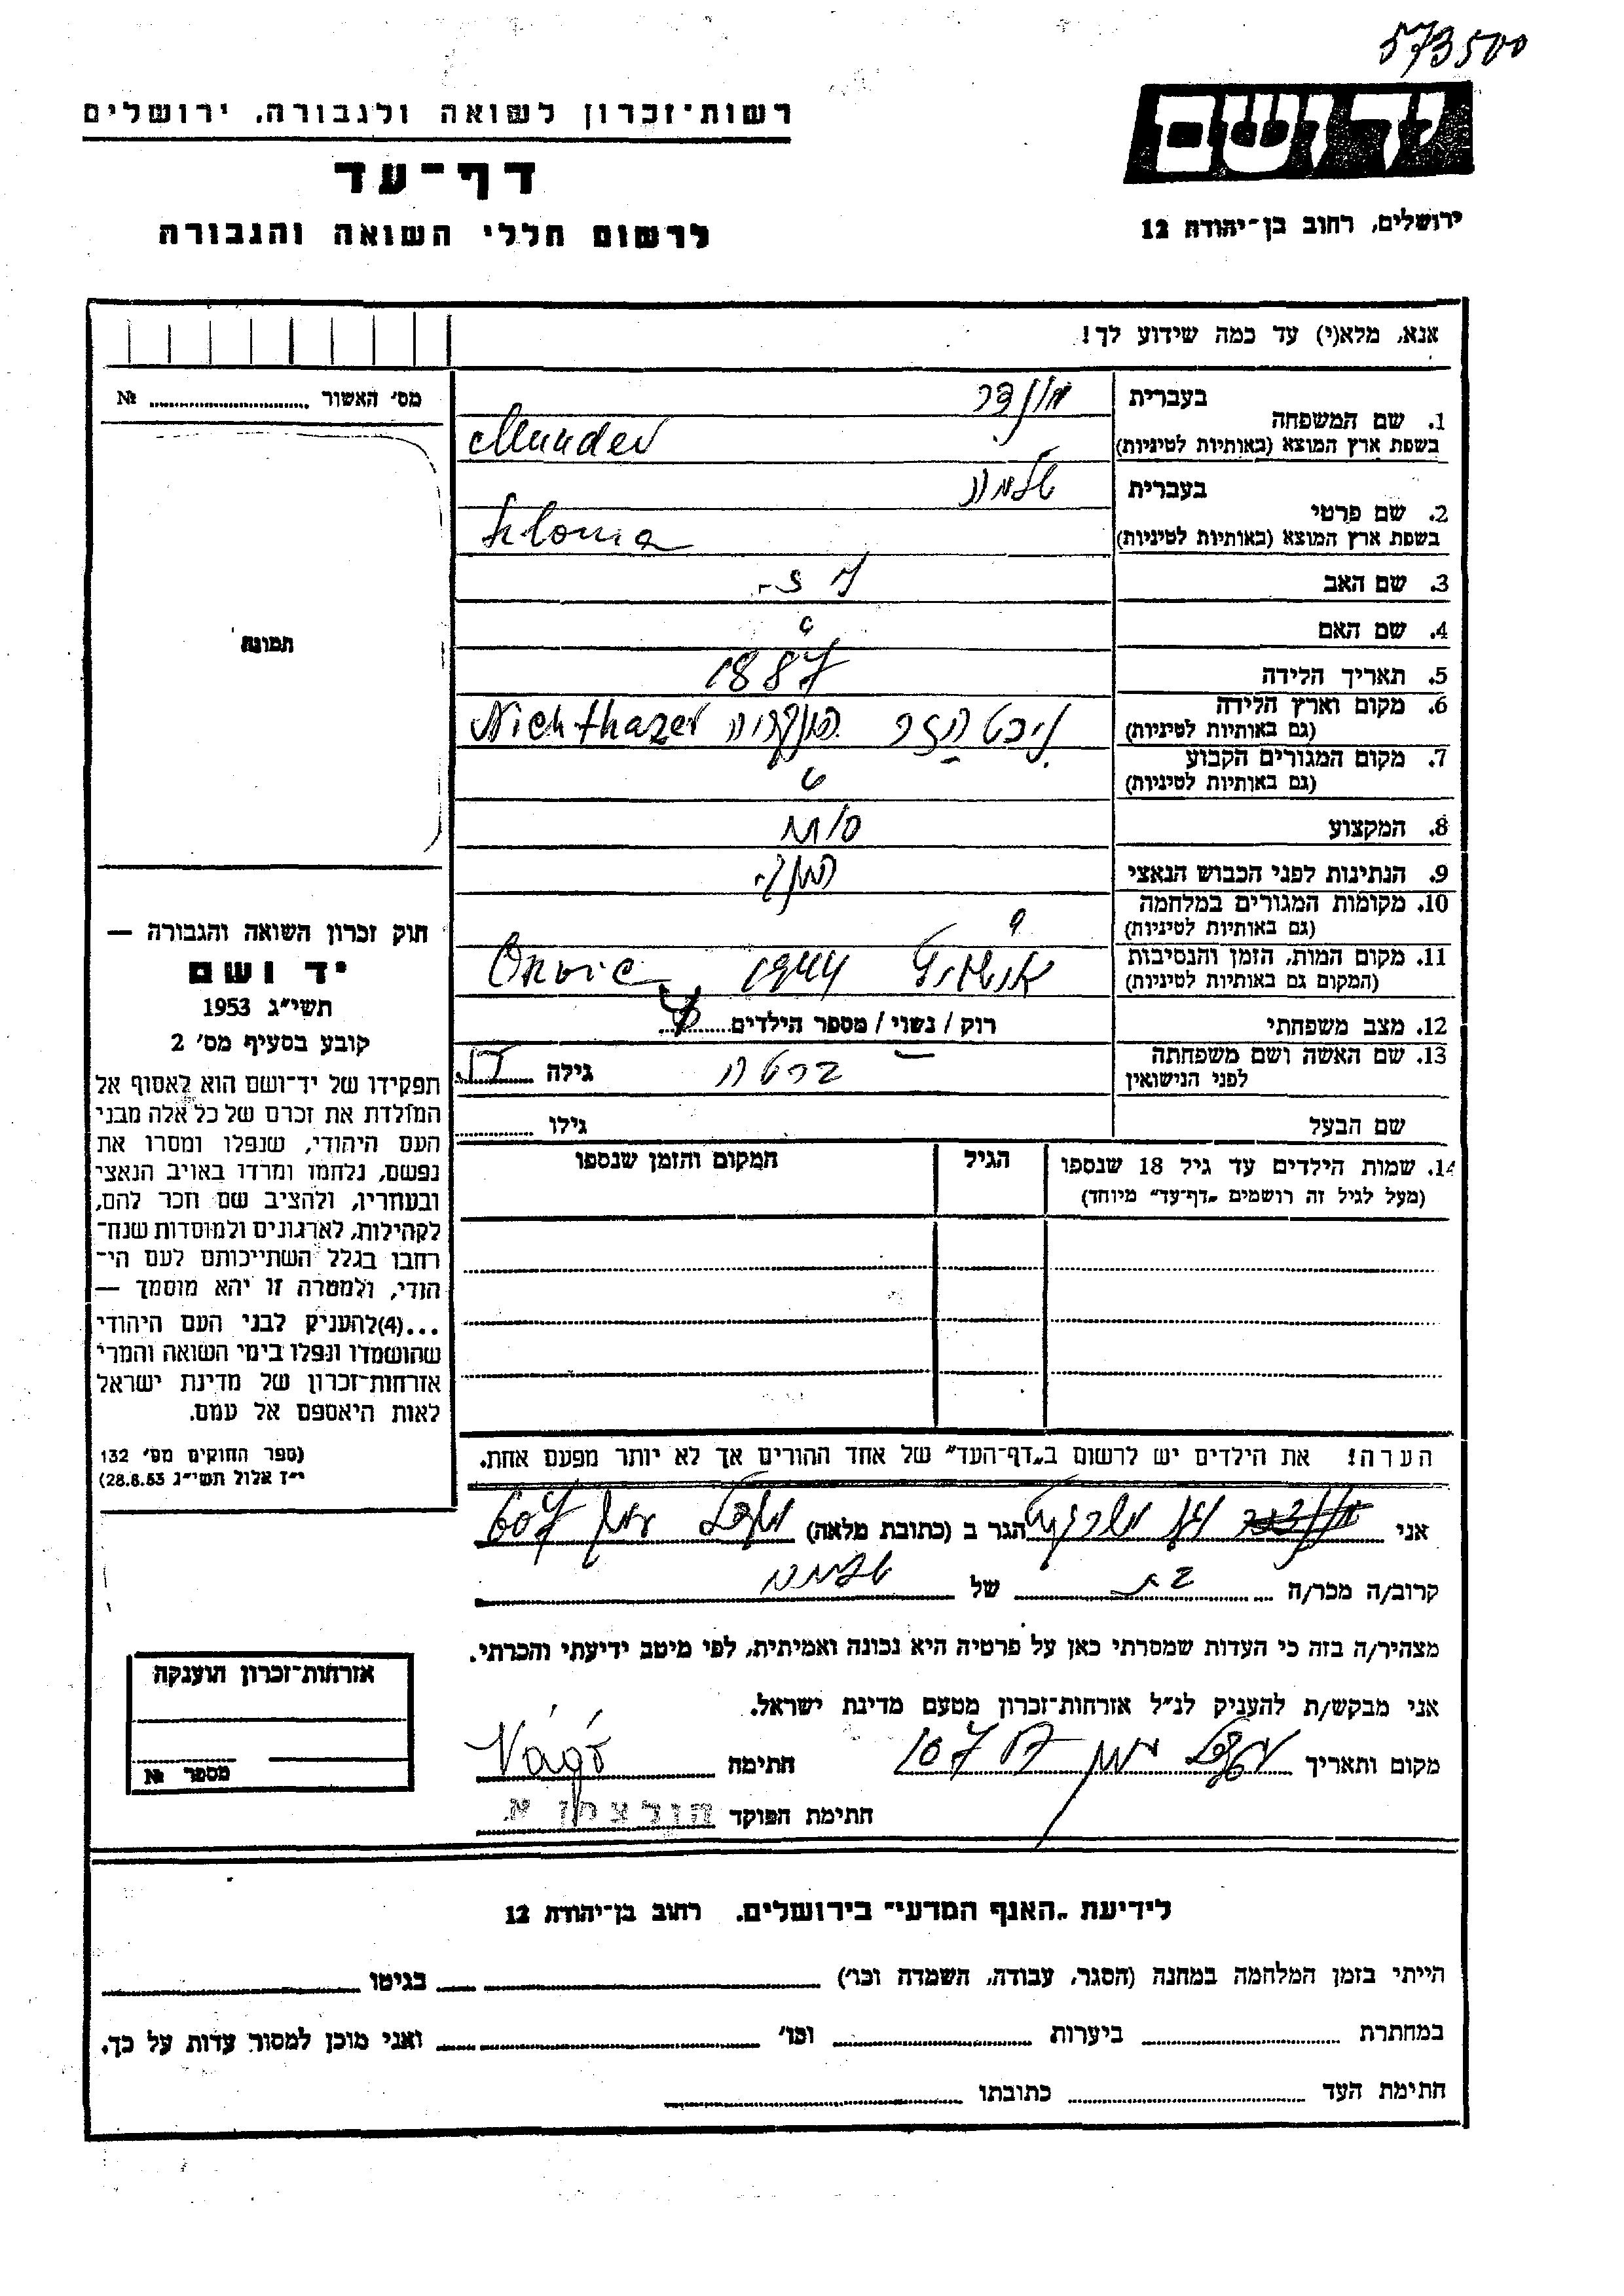 573500
יד ושם
רשות־זכרון לשואה ולגבורה, ירושלים
דף־עד
לרשום חללי השואה והגבורה
ירושלים, רחוב בן־יהודה 12
אנא, מלא(י) עד כמה שידוע לך!
מס' האשור № 
תמונה
בעברית
1. שם המשפחה
בשפת ארץ המוצא (באותיות לטיניות) Munder
בעברית שלמה
2. שם פרטי
בשפת ארץ המוצא (באותיות לטיניות)
3. שם האב
4. שם האם ?
5. תאריך הלידה 1887
6. מקום וארץ הלידה
(גם באותיות לטיניות) הונגריה Nichthazer
7. מקום המגורים הקבוע
(גם באותיות לטיניות)
8. המקצוע
9. הנתינות לפני הכבוש הנאצי הונג'
10. מקומות המגורים במלחמה ?
(גם באותיות לטיניות)
11. מקום המות, הזמן והנסיבות אושוויץ 1944
(המקום גם באותיות לטיניות)
12. מצב משפחתי רוק / נשוי / מספר הילדים
13. שם האשה ושם משפחתה ברטה גילה
לפני הנישואין
שם הבעל גילו
14. שמות הילדים עד גיל 18 שנספו הגיל המקום והזמן שנספו
(מעל לגיל זה רושמים „דף־עד” מיוחד)
הערה! את הילדים יש לרשום ב„דף־העד” של אחד ההורים אך לא יותר מפעם אחת.
חוק זכרון השואה והגבורה —
יד ושם
תשי״ג 1953
קובע בסעיף מס' 2
תפקידו של יד־ושם הוא לאסוף אל
המולדת את זכרם של כל אלה מבני
העם היהודי, שנפלו ומסרו את
נפשם, נלחמו ומרדו באויב הנאצי
ובעוזריו, ולהציב שם וזכר להם,
לקהילות, לארגונים ולמוסדות שנח־
רבו בגלל השתייכותם לעם הי־
הודי, ולמטרה זו יהא מוסמך —
...(4)להעניק לבני העם היהודי
שהושמדו ונפלו בימי השואה והמרי
אזרחות־זכרון של מדינת ישראל
לאות היאספם אל עמם.
(ספר החוקים מס' 132
י״ז אלול תשי״ג 28.8.53)
אני הגר ב (כתובת מלאה) 607
קרוב/ה מכר/ה בת של שלמה
מצהיר/ה בזה כי העדות שמסרתי כאן על פרטיה היא נכונה ואמיתית, לפי מיטב ידיעתי והכרתי.
אני מבקש/ת להעניק לנ״ל אזרחות־זכרון מטעם מדינת ישראל.
מקום ותאריך חתימה Vágó
חתימת הפוקד הורצהן א.
אזרחות־זכרון הוענקה
מספר №
לידיעת „האגף המדעי” בירושלים. רחוב בן־יהודה 12
הייתי בזמן המלחמה במחנה (הסגר, עבודה, השמדה וכו') בגיטו
במחתרת ביערות וכו' ואני מוכן למסור עדות על כך.
חתימת העד כתובתו